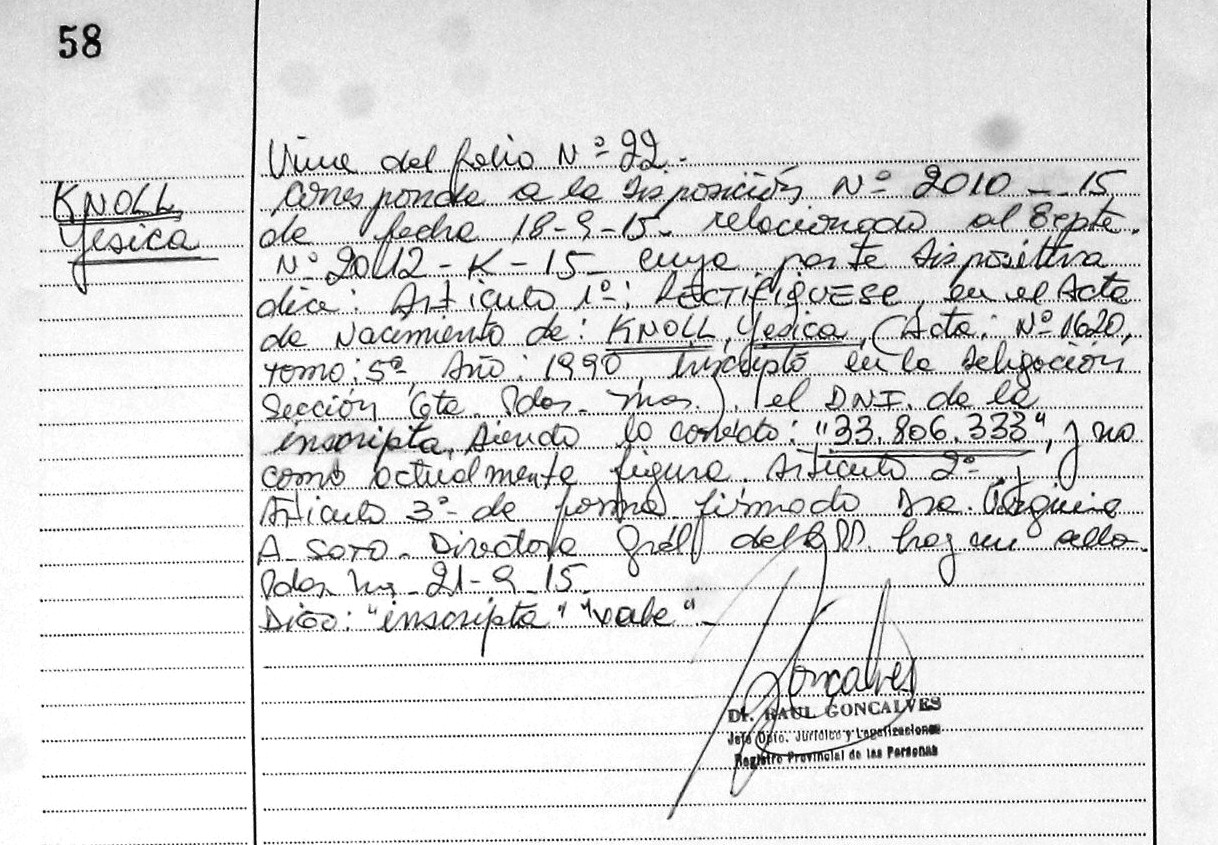 58
KNOLL
Yesica
Viene del folio Nº 22.-
Corresponde a la Disposición, Nº 2010 - 15
de fecha 18-9-15. relacionado al Expte.
Nº 20112-K-15- cuya parte dispositiva
dice: Artículo 1º: RECTIFIQUESE, en el Acta
de Nacimiento de: KNOLL, Yesica, (Acta: Nº 1620,
tomo: 5º, Año: 1990, Inscripta en la Delegación
Sección 6ta. Pdas. Mnes.), el DNI. de la
inscripta, siendo lo correcto: "33.806.333", y no
como actualmente figura. Artículo 2º-
Artículo 3º- de forma firmado Dra.
A. SOTO. Directora Gral del hay un sello.
Pdas. Mnes. 21-9-15.
Digo: "inscripta" "vale".-
Goncalves
Dr. RAUL GONCALVES
Jefe Dpto. Jurídico y Legalizaciones
Registro Provincial de las Personas